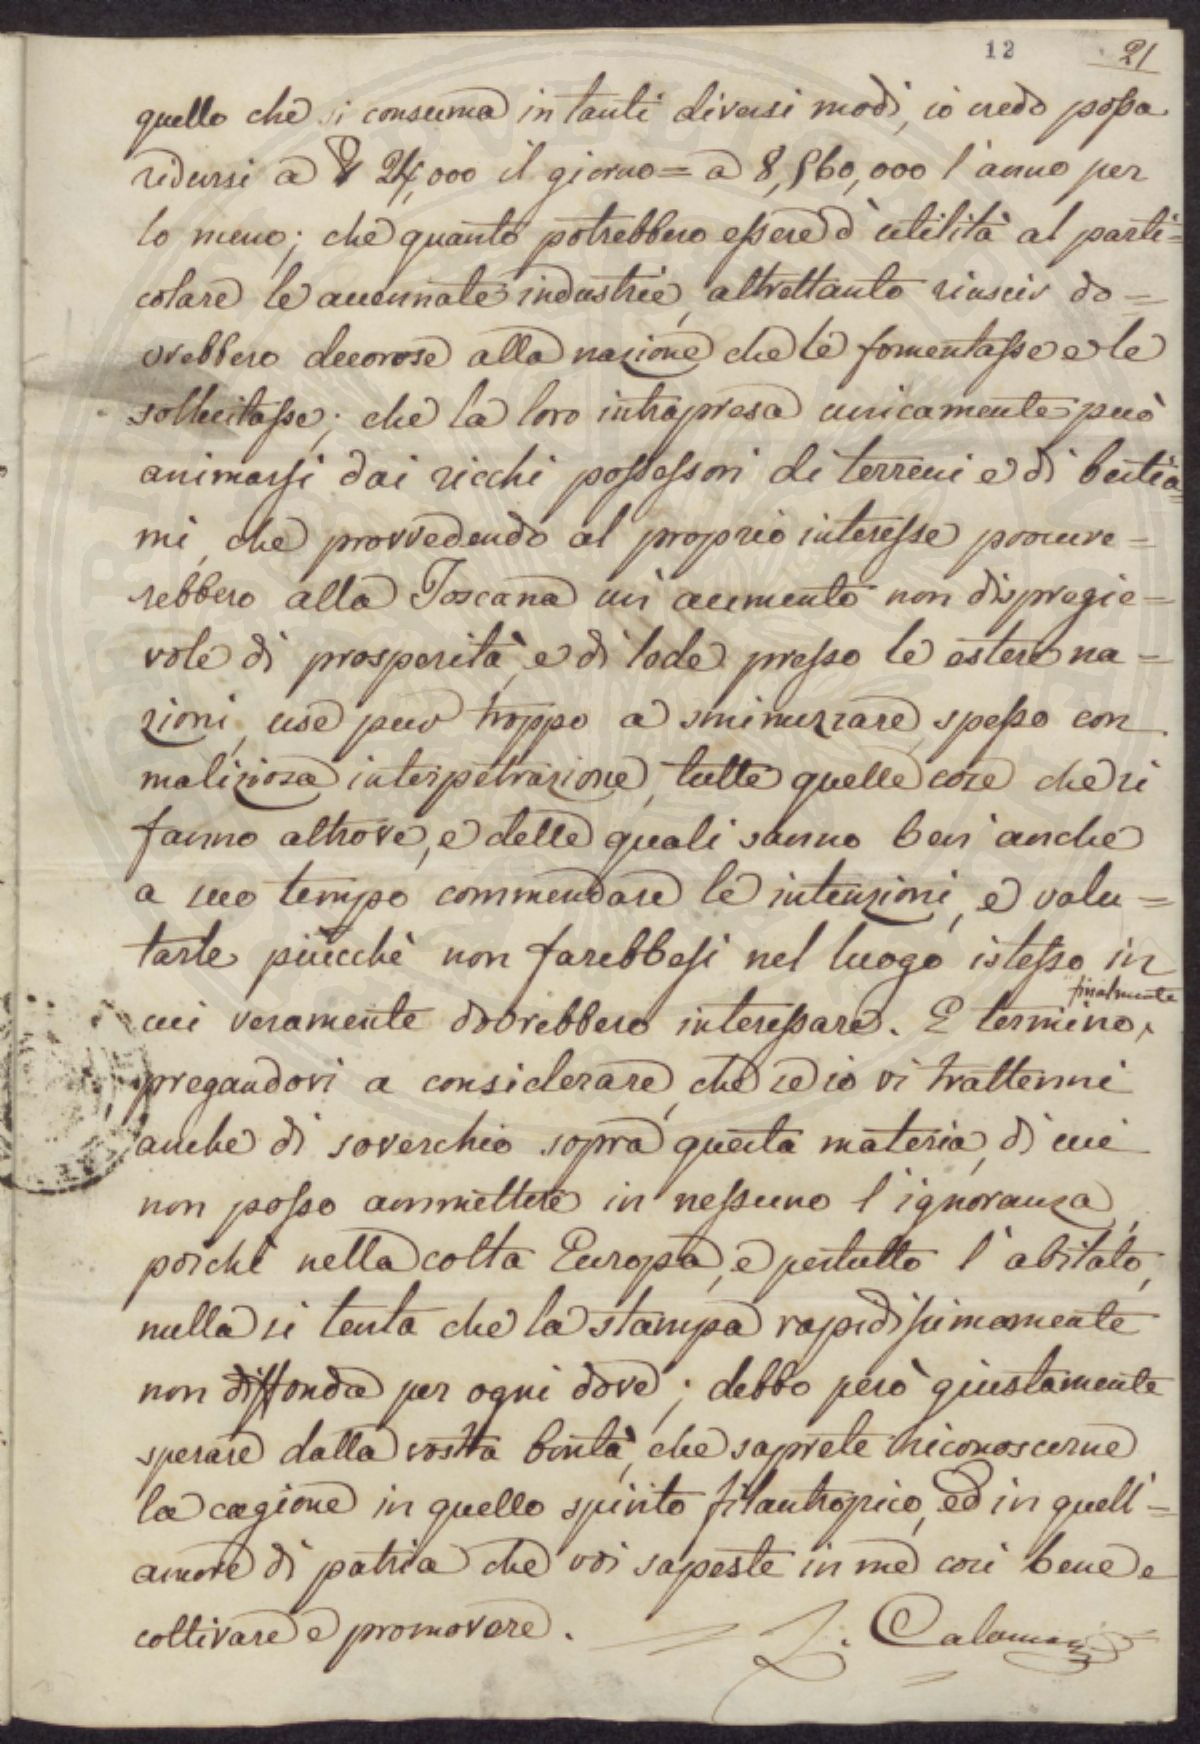 12 21
quello che si consuma in tanti diversi modi, io credo possa
ridursi a 24,000 il giorno = a 8,560,000 l'anno per
lo meno; che quanto potrebbero essere d'utilità al parti=
colare le accennate industrie, altrettanto riuscir do=
vrebbero decorose alla nazione che le fomentasse e le
sollecitasse; che la loro intrapresa unicamente può
animarsi dai ricchi possessori di terreni e di bestia=
mi, che provvedendo al proprio interesse procure=
rebbero alla Toscana un aumento non dispregie=
vole di prosperità, e di lode presso le estere na=
zioni, use pur troppo a sminuzzare, spesso con
maliziosa interpetrazione, tutte quelle cose che si
fanno altrove, e delle quali sanno ben anche
a suo tempo commendare le intenzioni, e valu=
tarle piucchè non farebbesi nel luogo istesso in
cui veramente dovrebbero interessare. E termino, finalmente
pregandovi a considerare, che se io vi trattenni
anche di soverchio sopra questa materia, di cui
non posso ammettere in nessuno l'ignoranza,
poichè nella colta Europa, e pertutto l'abitato,
nulla si tenta che la stampa rapidissimamente
non diffonda per ogni dove; debbo però giustamente
sperare dalla vostra bontà, che saprete riconoscerne
la cagione in quello spirito filantropico, ed in quell'=
amore di patria che voi sapeste in me così bene e
coltivare e promovere. L. Calamai